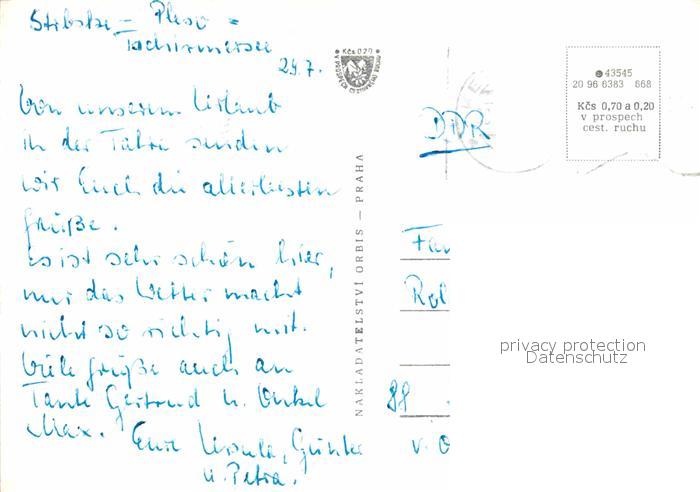 Strbske = Pleso =
Tschirmersee
29.7.
Von unserem Urlaub
in der Tatra senden
wir Euch die allerbesten
Grüße.
es ist sehr schön hier,
nur das Wetter macht
nicht so richtig mit.
Viele Grüße auch an
Tante Gertrud u. Onkel
Max. Eure Ursula, Günter
u. Petra.
Kčs 0,20
NAKLADATELSTVÍ ORBIS — PRAHA
43545
20 96 6383 668
Kčs 0,70 a 0,20
v prospech
cest. ruchu
DDR
Fam
Rol
privacy protection
Datenschutz